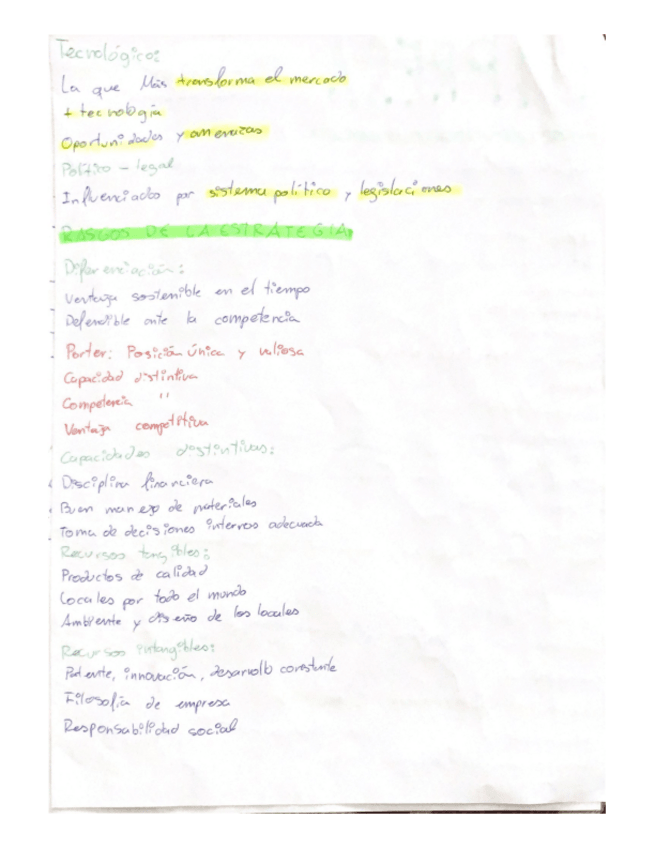 Tecnológico:
La que Más transforma el mercado
+ tecnología
Oportunidades y amenazas
Político - legal
Influenciado por sistema político y legislaciones
RASGOS DE LA ESTRATEGIA
Diferenciación:
Ventaja sostenible en el tiempo
Defendible ante la competencia
Porter: Posición única y valiosa
Capacidad distintiva
Competencia "
Ventaja competitiva
Capacidades distintivas:
Disciplina financiera
Buen manejo de materiales
Toma de decisiones internas adecuada
Recursos tangibles:
Productos de calidad
Locales por todo el mundo
Ambiente y diseño de los locales
Recursos intangibles:
Patente, innovación, desarrollo constante
Filosofía de empresa
Responsabilidad social